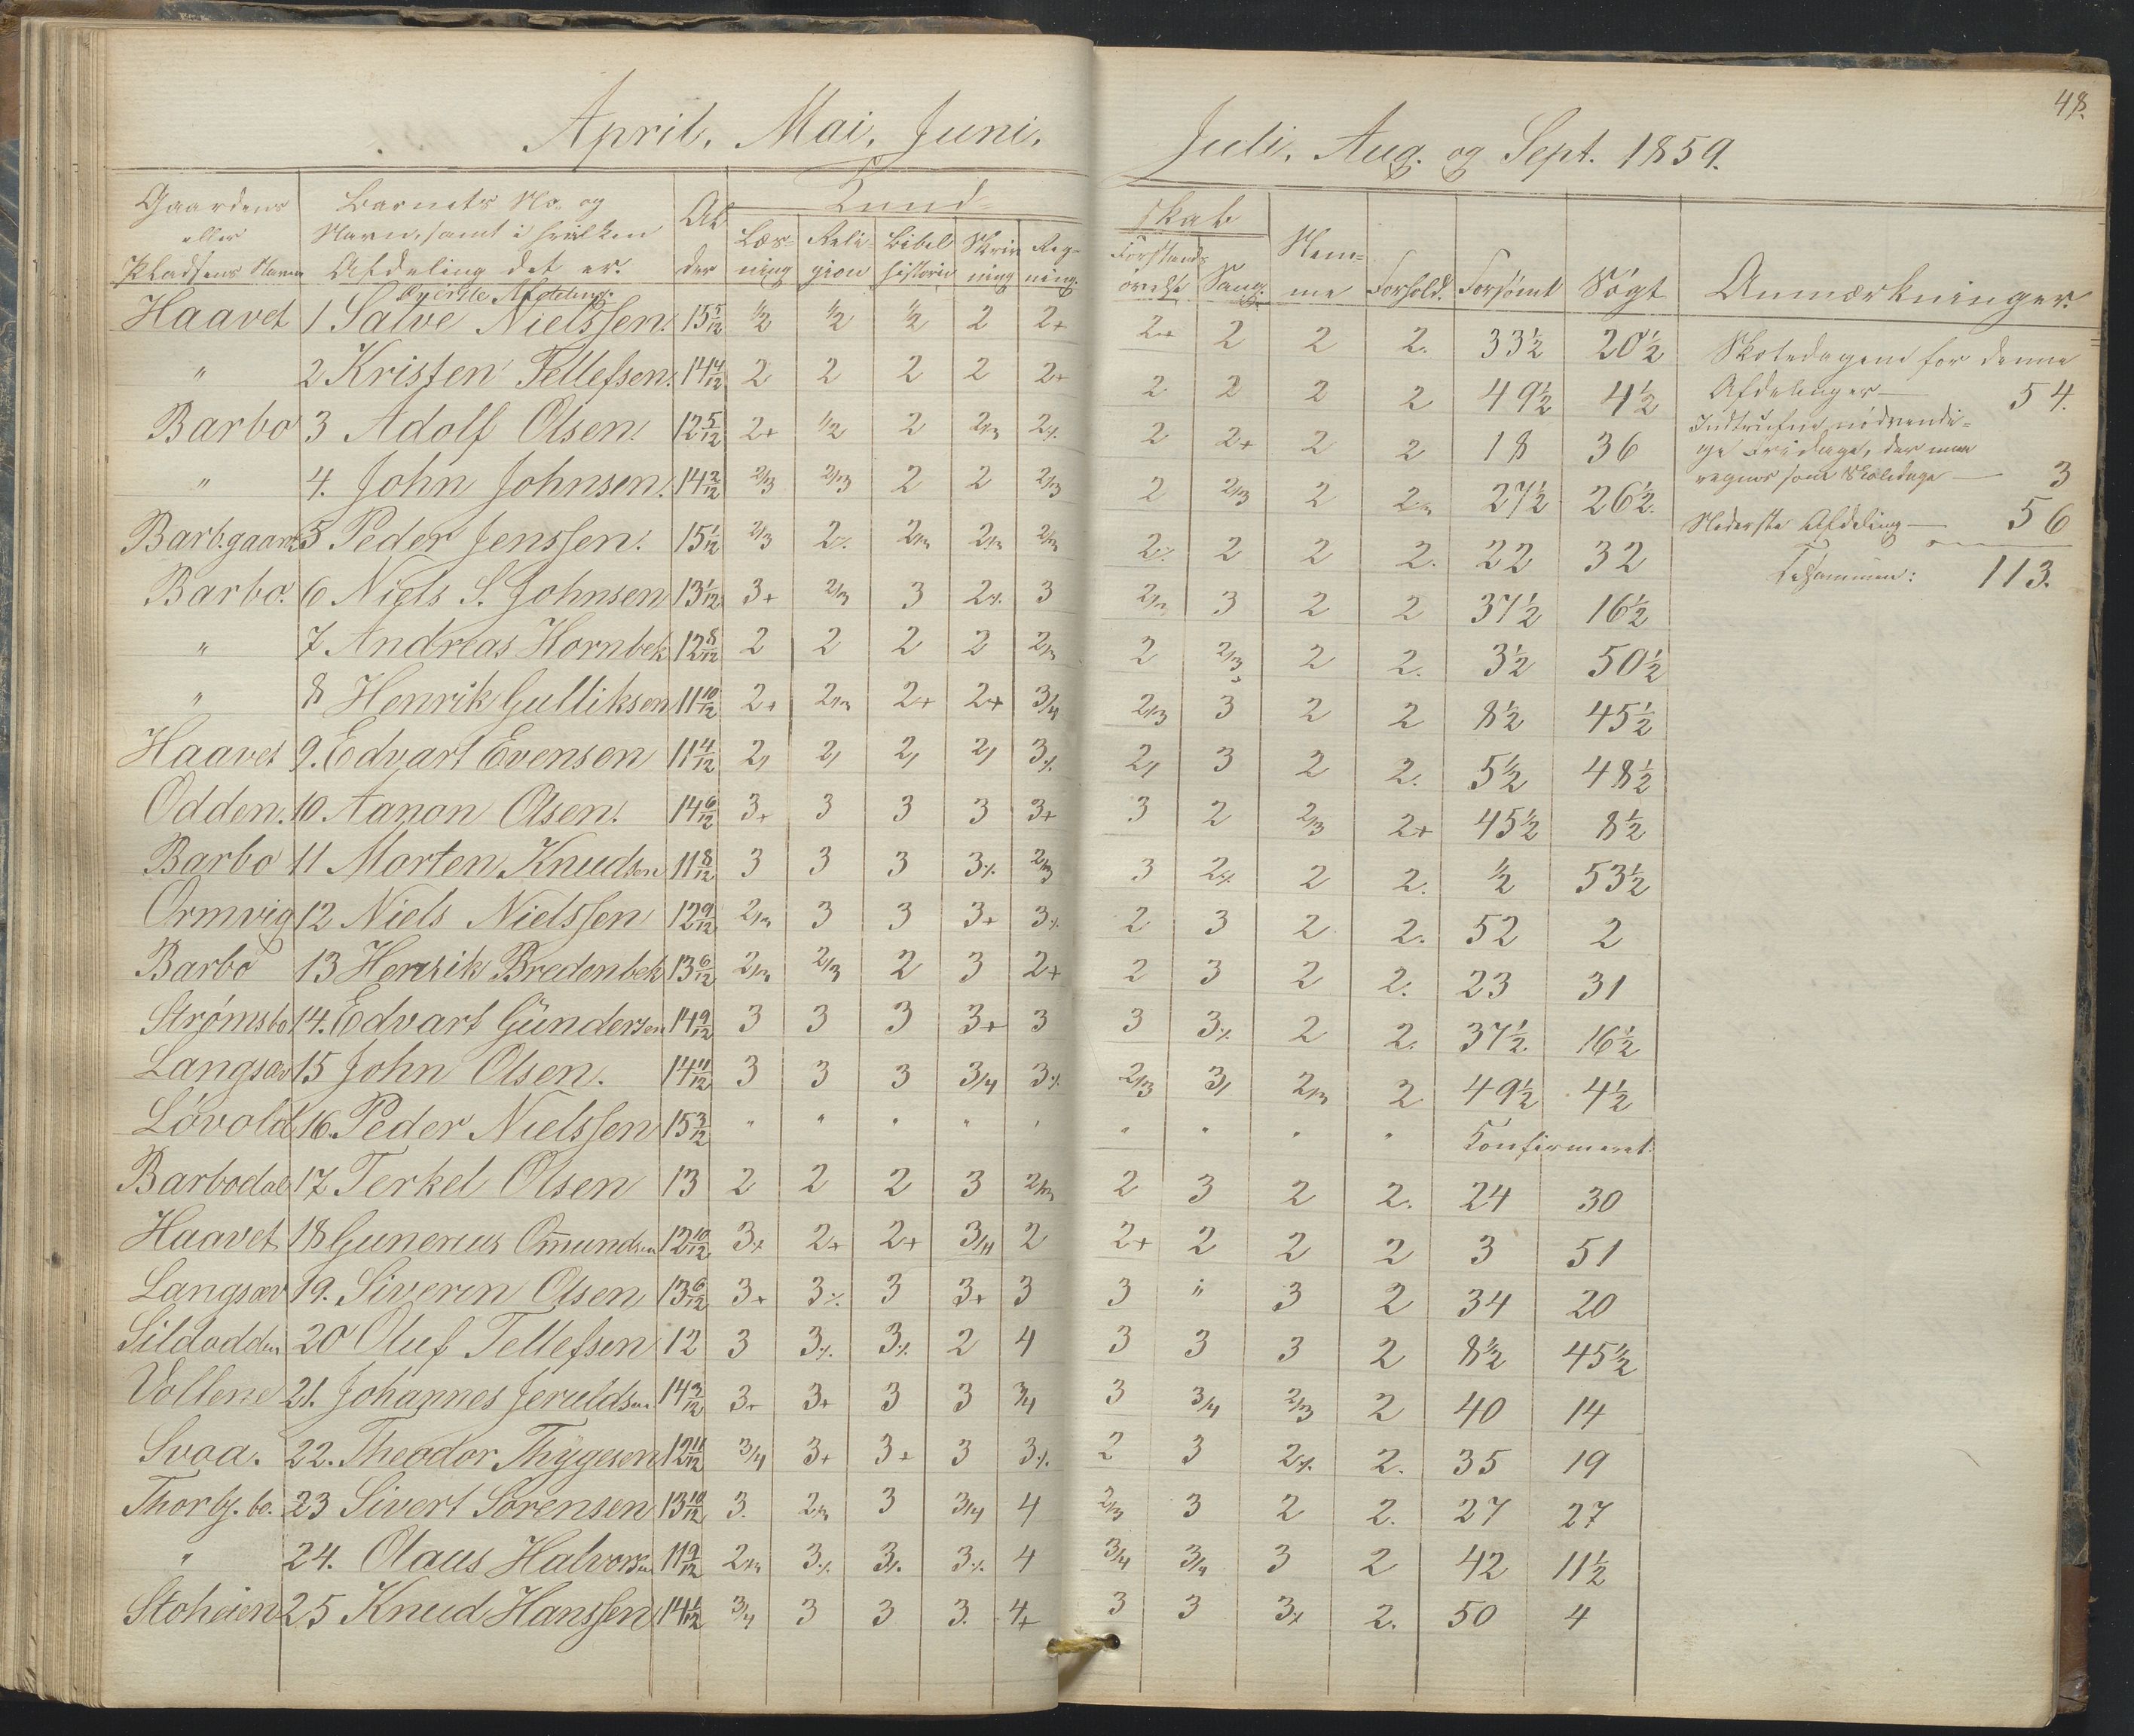 48.
April, Mai, Juni, Juli, Aug. og Sept. 1859.
Gaardens eller Pladsens Navn | Barnets No. og Navn, samt i hvilken Afdeling det er. | Alder | Kundskab: Læsning | Religion | Bibelhistorie | Skrivning | Regning. | Forstandsøvelse | Sang. | Nemme | Forhold. | Forsømt | Søgt | Anmærkninger.
Øverste Afdeling.
Haavet 1 Salve Nielssen. 15 5/12 1/2 1/2 1/2 2 2+ 2+ 2 2 2. 33 1/2 20 1/2
" 2 Kristen Tellefsen. 14 4/12 2 2 2 2 2+ 2 2 2 2 49 1/2 4 1/2
Barbo 3 Adolf Olsen. 12 5/12 2+ 1/2 2 2/3 2% 2 2+ 2 2 18 36
" 4. John Johnsen. 14 2/12 2/3 2/3 2 2 2/3 2 2/3 2 2 27 1/2 26 1/2.
Barb.gaard 5 Peder Jenssen. 15 1/12 2/3 2% 2/3 2/3 2/3 2% 2 2 2. 22 32
Barbo. 6 Niels S. Johnsen 13 1/12 3+ 2/3 3 2% 3 2/3 3 2 2 37 1/2 16 1/2
" 7 Andreas Hornbek 12 8/12 2 2 2 2 2/3 2 2/3 2 2. 3 1/2 50 1/2
" 8 Henrik Gulliksen 11 10/12 2+ 2/3 2+ 2+ 3/4 2/3 3 2 2 8 1/2 45 1/2
Haavet 9. Edvart Evensen 11 4/12 2, 2, 2, 2, 3% 2, 3 2 2. 5 1/2 48 1/2
Odden. 10. Aanon Olsen. 14 6/12 3+ 3 3 3 3+ 3 2 2/3 2+ 45 1/2 8 1/2
Barbo 11 Morten Knudsen 11 8/12 3 3 3 3% 2/3 3 2% 2 2. 1/2 53 1/2
Ormvig 12 Niels Nielssen 12 9/12 2/3 3 3 3+ 3% 2 3 2 2. 52 2
Barbo 13 Henrik Bredenbek 13 6/12 2/3 2/3 2 3 2+ 2 3 2 2. 23 31
Strømsbo 14. Edvart Gundersen 14 9/12 3 3 3 3+ 3 3 3% 2 2. 37 1/2 16 1/2
Langsæv 15 John Olsen. 14 11/12 3 3 3 3/4 3% 2/3 3/ 2/3 2 49 1/2 4 1/2
Løvold 16. Peder Nielssen 15 3/12 " " " " " " " " " Konfirmeret.
Barbodal 17 Terkel Olsen 13 2 2 2 3 2/3 2 3 2 2. 24 30
Haavet 18 Gunerius Omundsen 12 10/12 3+ 2+ 2+ 3/4 2 2+ 2 2 2 3 51
Langsæv 19. Siverin Olsen 13 6/12 3+ 3% 3 3+ 3 3 " 3 2 34 20
Sildodden 20 Oluf Tellefsen 12 3 3% 3% 2 4 3 3 3 2 8 1/2 45 1/2
Vollene 21. Johannes Jeruldsen 14 3/12 3+ 3+ 3 3 3/4 3 3/4 2/3 2 40 14
Svaa. 22. Theodor Thygesen 12 11/12 3/4 3+ 3+ 3 3% 2 3 2% 2. 35 19
Thorbj. bo. 23 Sivert Sørensen 13 10/12 3. 2/3 3 3/4 4 2/3 3 2 2. 27 27
" 24. Olaus Halvorsen 11 9/12 2/3 3% 3% 3% 4 3/4 3/4 3 2 42 11 1/2
Stoheien 25 Knud Hanssen 14 1/12 3/4 3 3 3. 4+ 3 3 3+ 2. 50 4
Skoledagene for denne
Afdelinger— 54.
Indtrufne nødvendi=
ge Fridage, der maa
regnes som Skoledage — 3
Nederste Afdeling — 56
Tilsammen: 113.